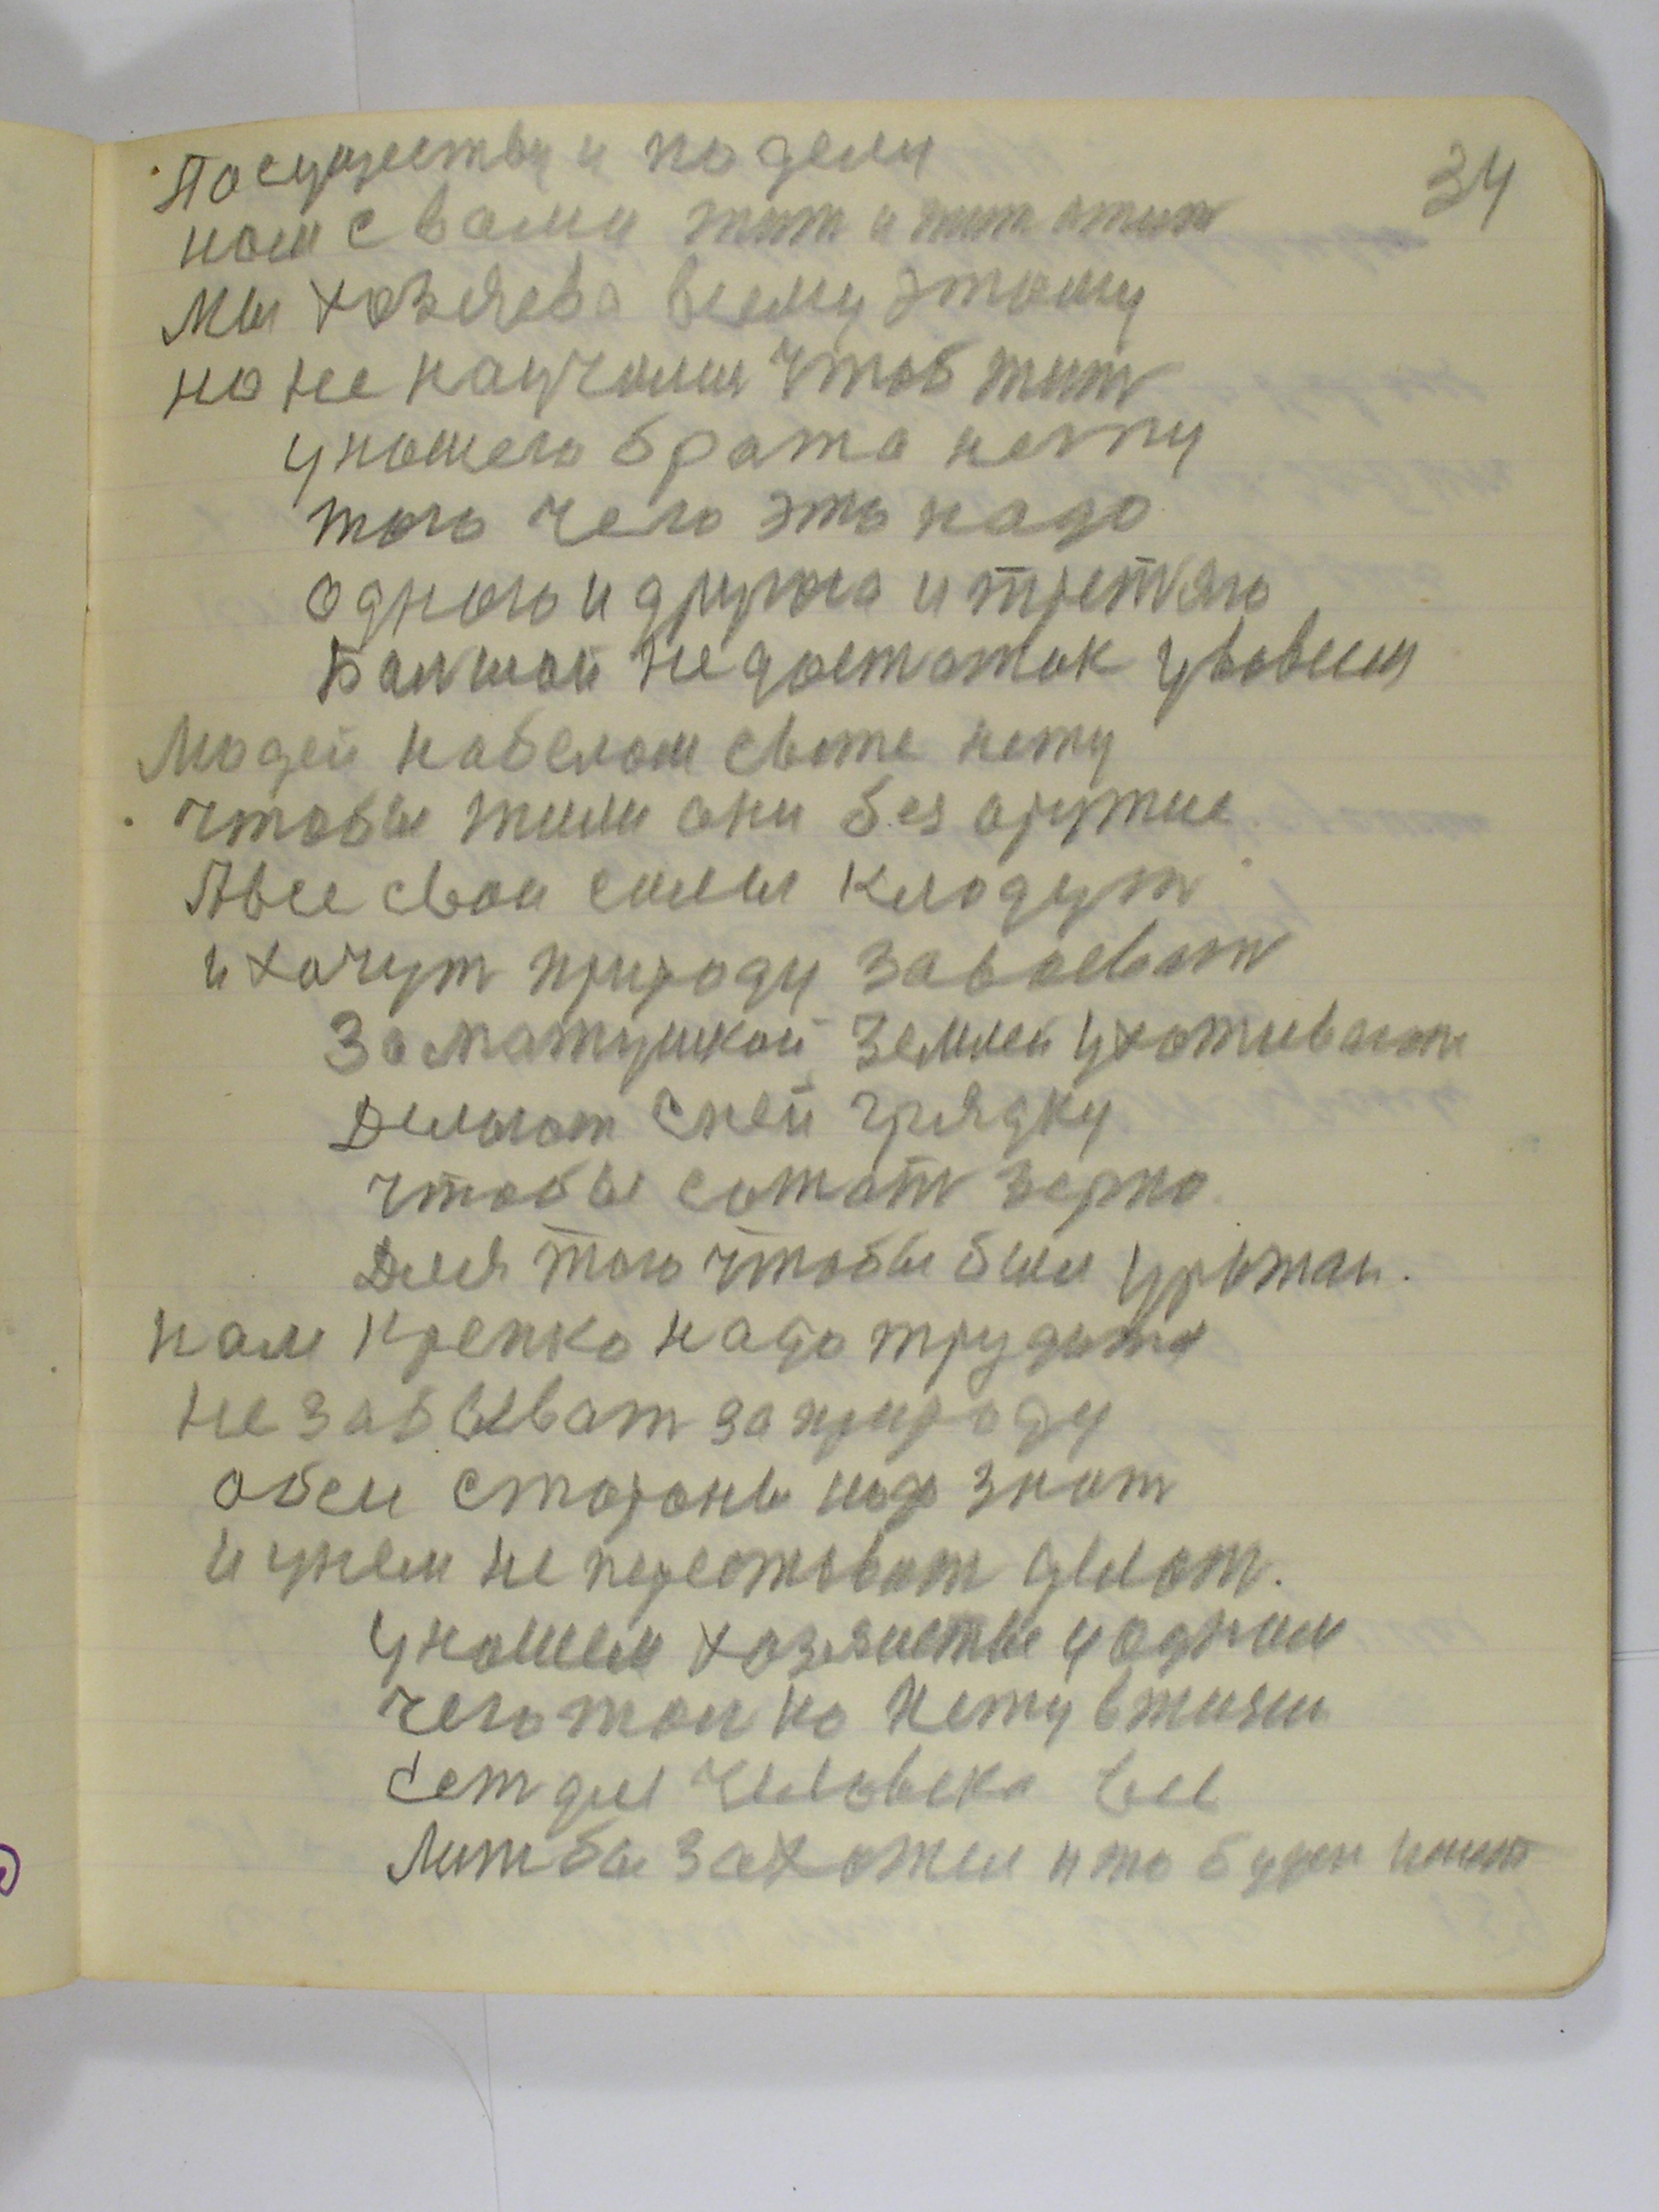 34
Посуществу и подели
нам с вами жит и жит
Мы хозяева всему этому
но не научоны чтоб жит
унашего брата нету
того чего это надо
одного и другога и третяго
Балшой недостаток увовсем
Людей набелом свете нету
чтобы жили они без оружие
Авсе свои силы кладут
и хочут природу завоеват
Заматушкой землей ухаживают
Делают сней грядку
чтобы сажат зерно
Для того чтобы был урожаи.
нам крепко надо трудится
не забыват заприроду
обеи стороны надо знат
и унем не перестават делат.
унашем хозяистве уодном
чего толко нету вжизни
Сет для человека все
Лиш бы захотел и то будеш